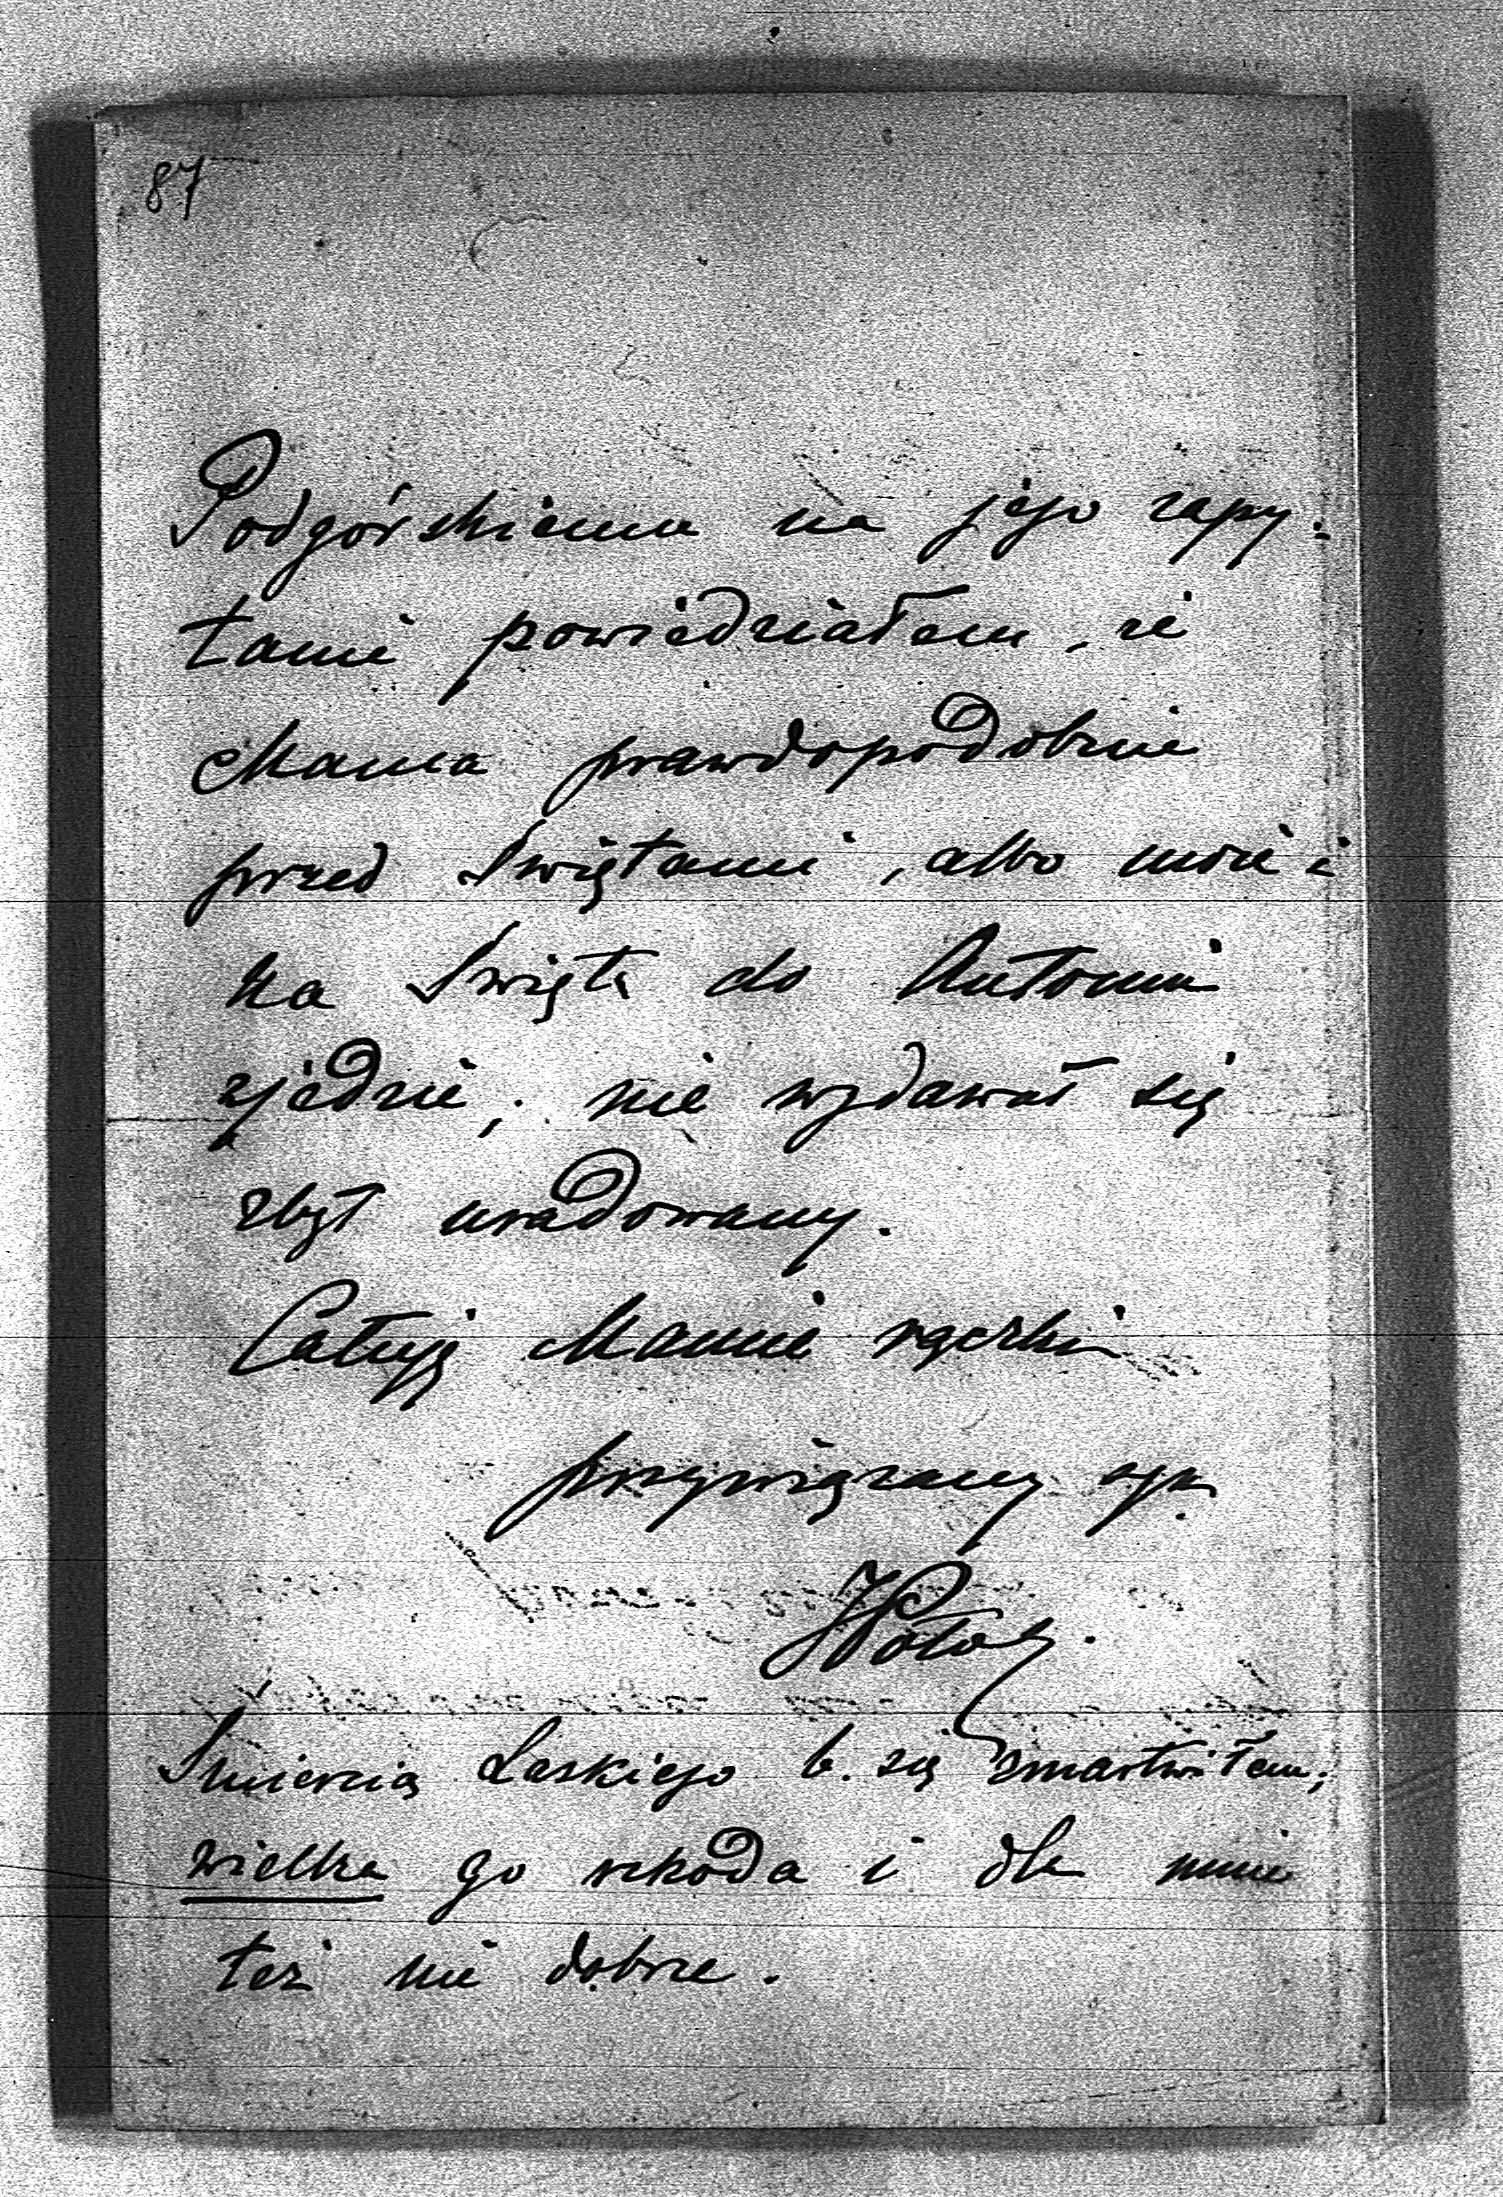 87
Podgórskiemu na jego zapy-
tanie powiedziałem, że
Mama prawdopodobnie
przed Świętami, albo może i
na Święta do Antonin
zjedzie; nie wydawał się
zbyt uradowany.
Całuję Mamie rączki
przywiązany syn.
JPotocki.
Śmiercią Laskiego b. się zmartwiłem;
wielka go szkoda i dla mnie
też nie dobrze.